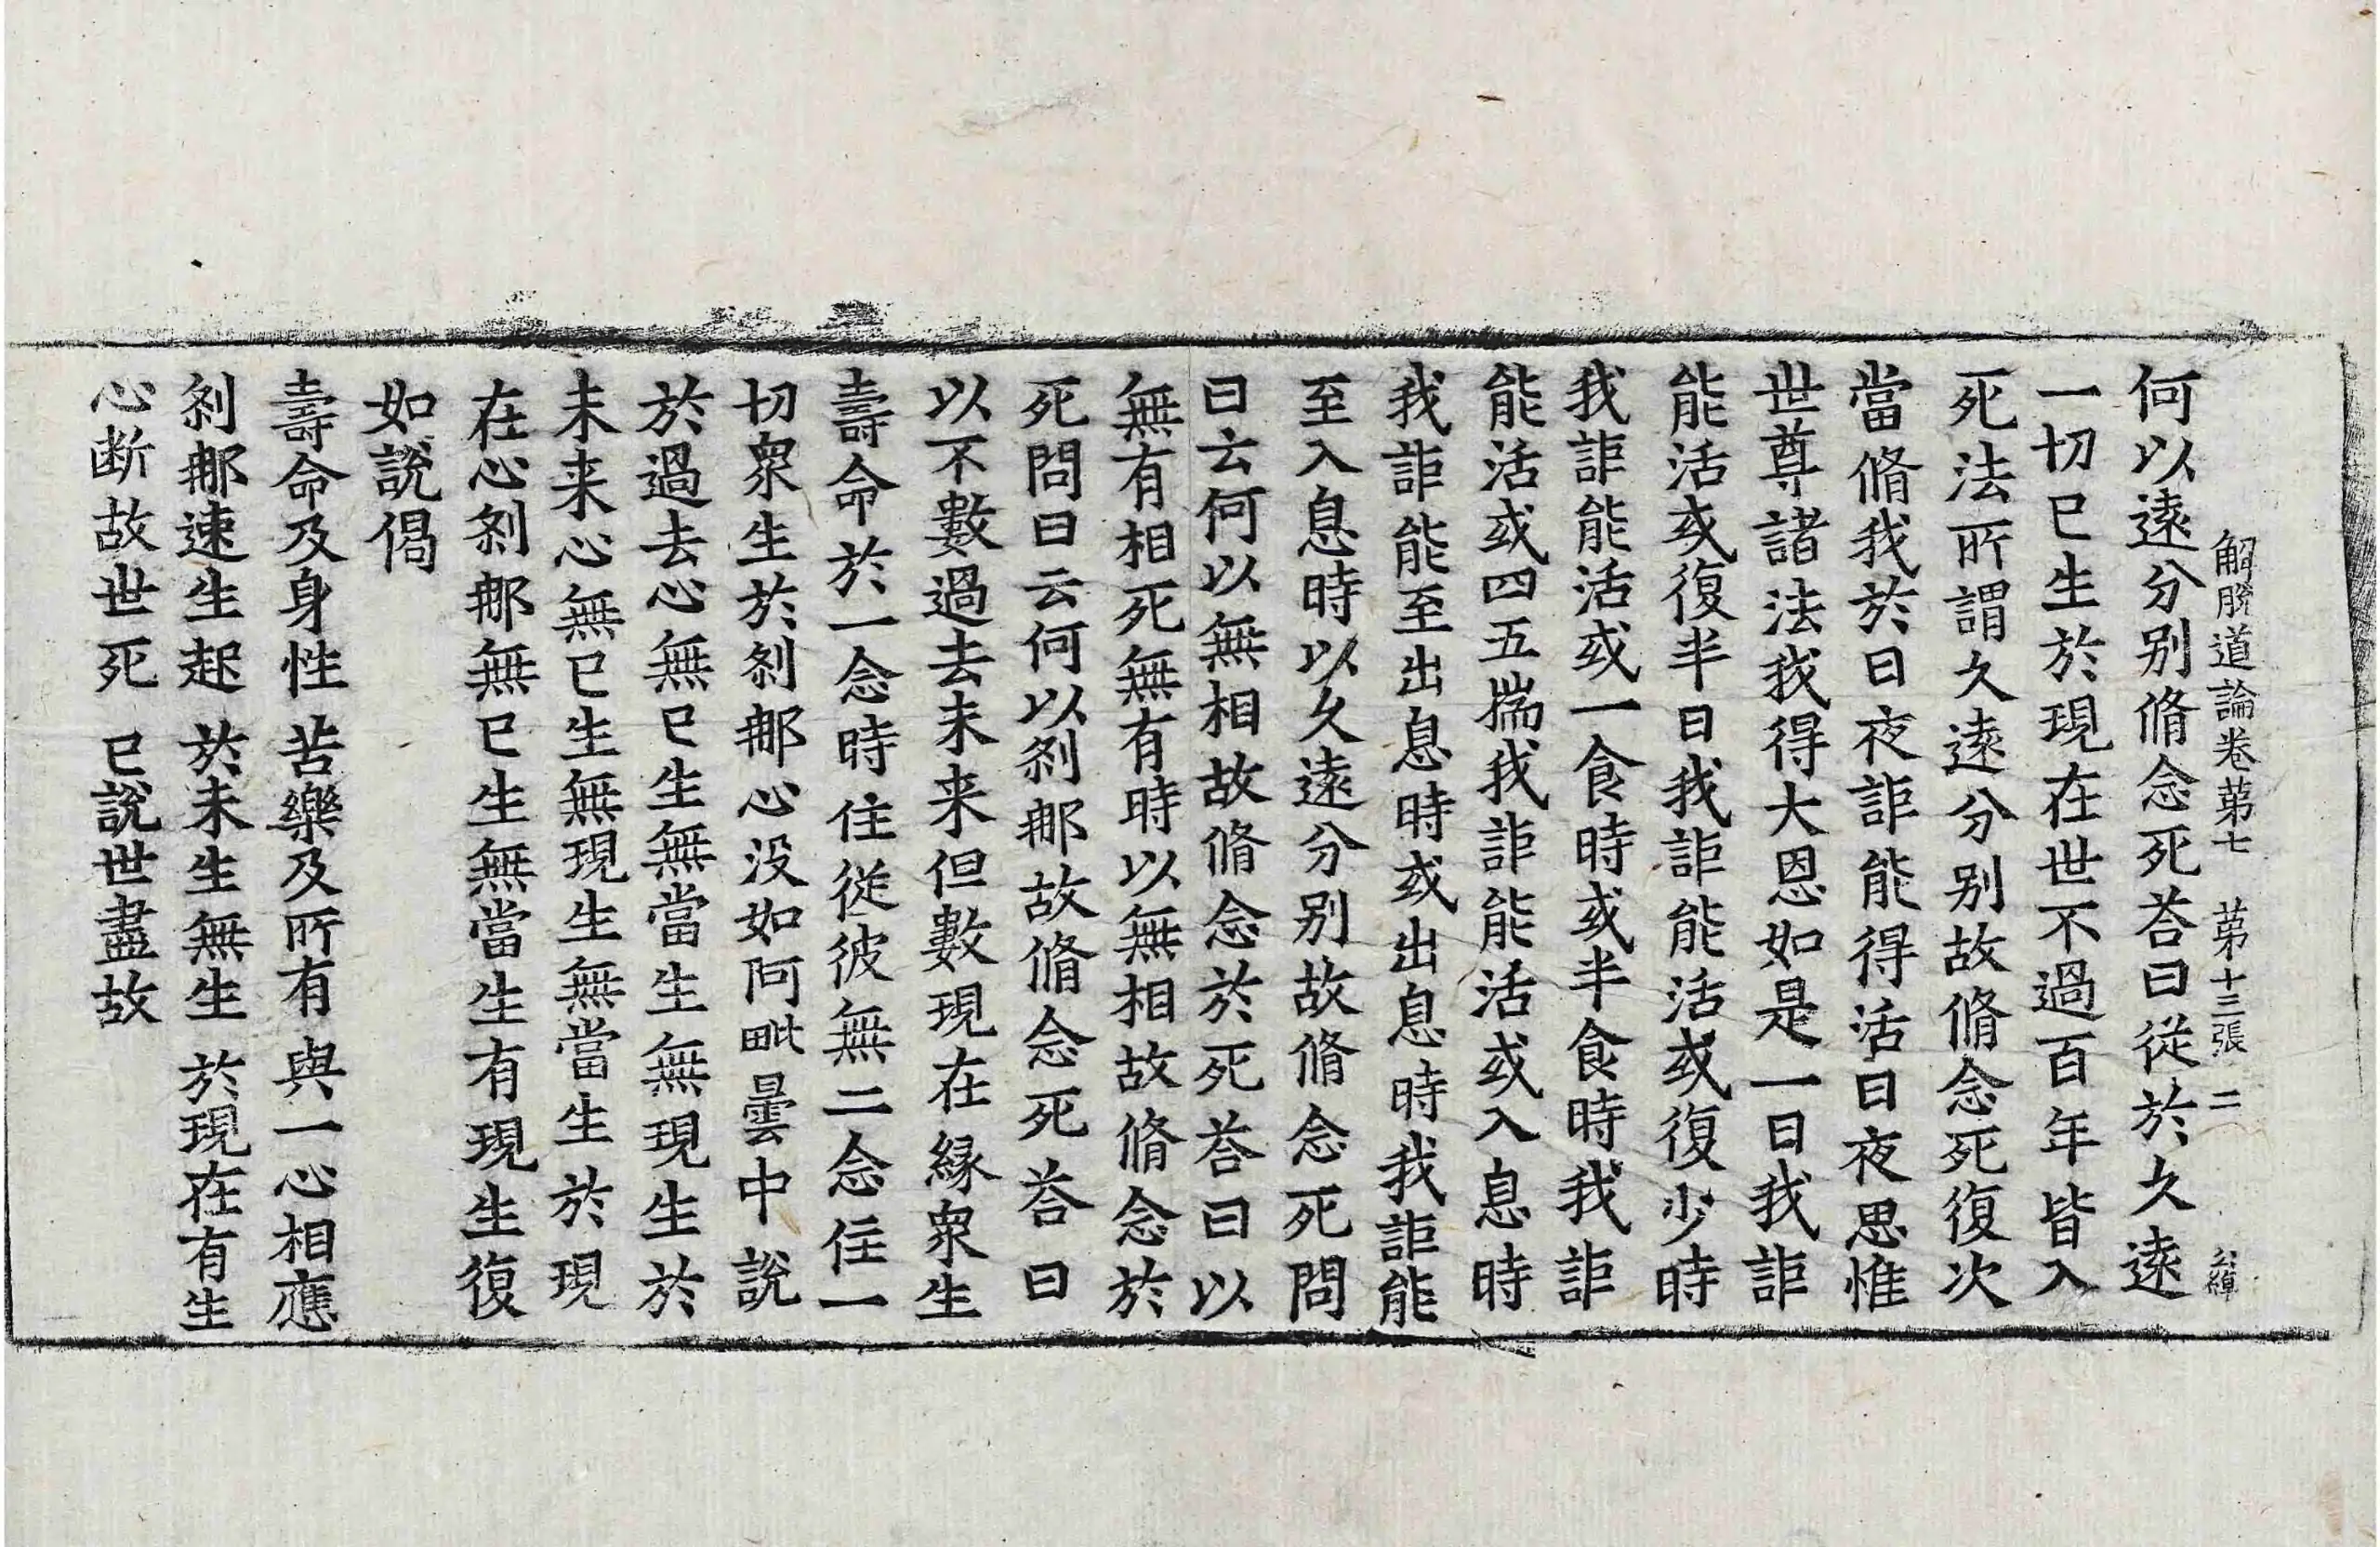 解脱道論卷苐七 苐十三張 二
何以遠分别脩念死荅曰從於久遠
一切已生於現在世不過百年皆入
死法所謂久遠分别故脩念死復次
當脩我於日夜詎能得活日夜思惟
世尊諸法我得大恩如是一日我詎
能活或復半日我詎能活或復少時
我詎能活或一食時或半食時我詎
能活或四五揣我詎能活或入息時
我詎能至出息時或出息時我詎能
至入息時以久遠分别故脩念死問
曰云何以無相故脩念於死荅曰以
無有相死無有時以無相故脩念於
死問曰云何以刹那故脩念死荅曰
以不數過去未来但數現在緣衆生
壽命於一念時住從彼無二念住一
切衆生於刹那心没如阿毗曇中說
於過去心無已生無當生無現生於
未来心無已生無現生無當生於現
在心刹那無已生無當生有現生復
如說偈
壽命及身性 苦樂及所有 與一心相應
刹那速生起 於未生無生 於現在有生
心断故世死 已說世盡故